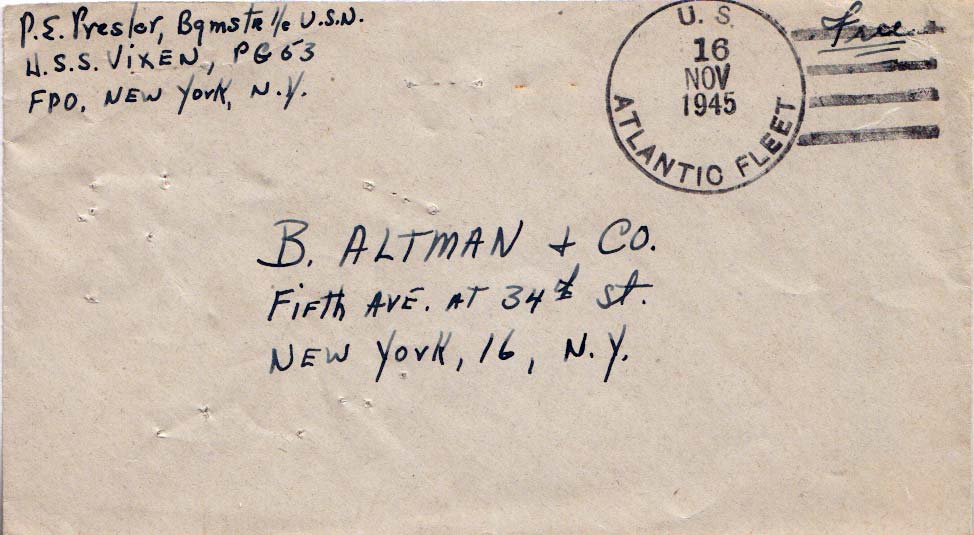 P.E. Presler, Bgmstr 1/c U.S.N.
U.S.S. VIXEN, PG 53
FPO, NEW York, N.Y.
U. S.
16
NOV
1945
ATLANTIC FLEET
Free
B. ALTMAN + CO.
Fifth AVE. AT 34th St.
NEW York, 16, N.Y.